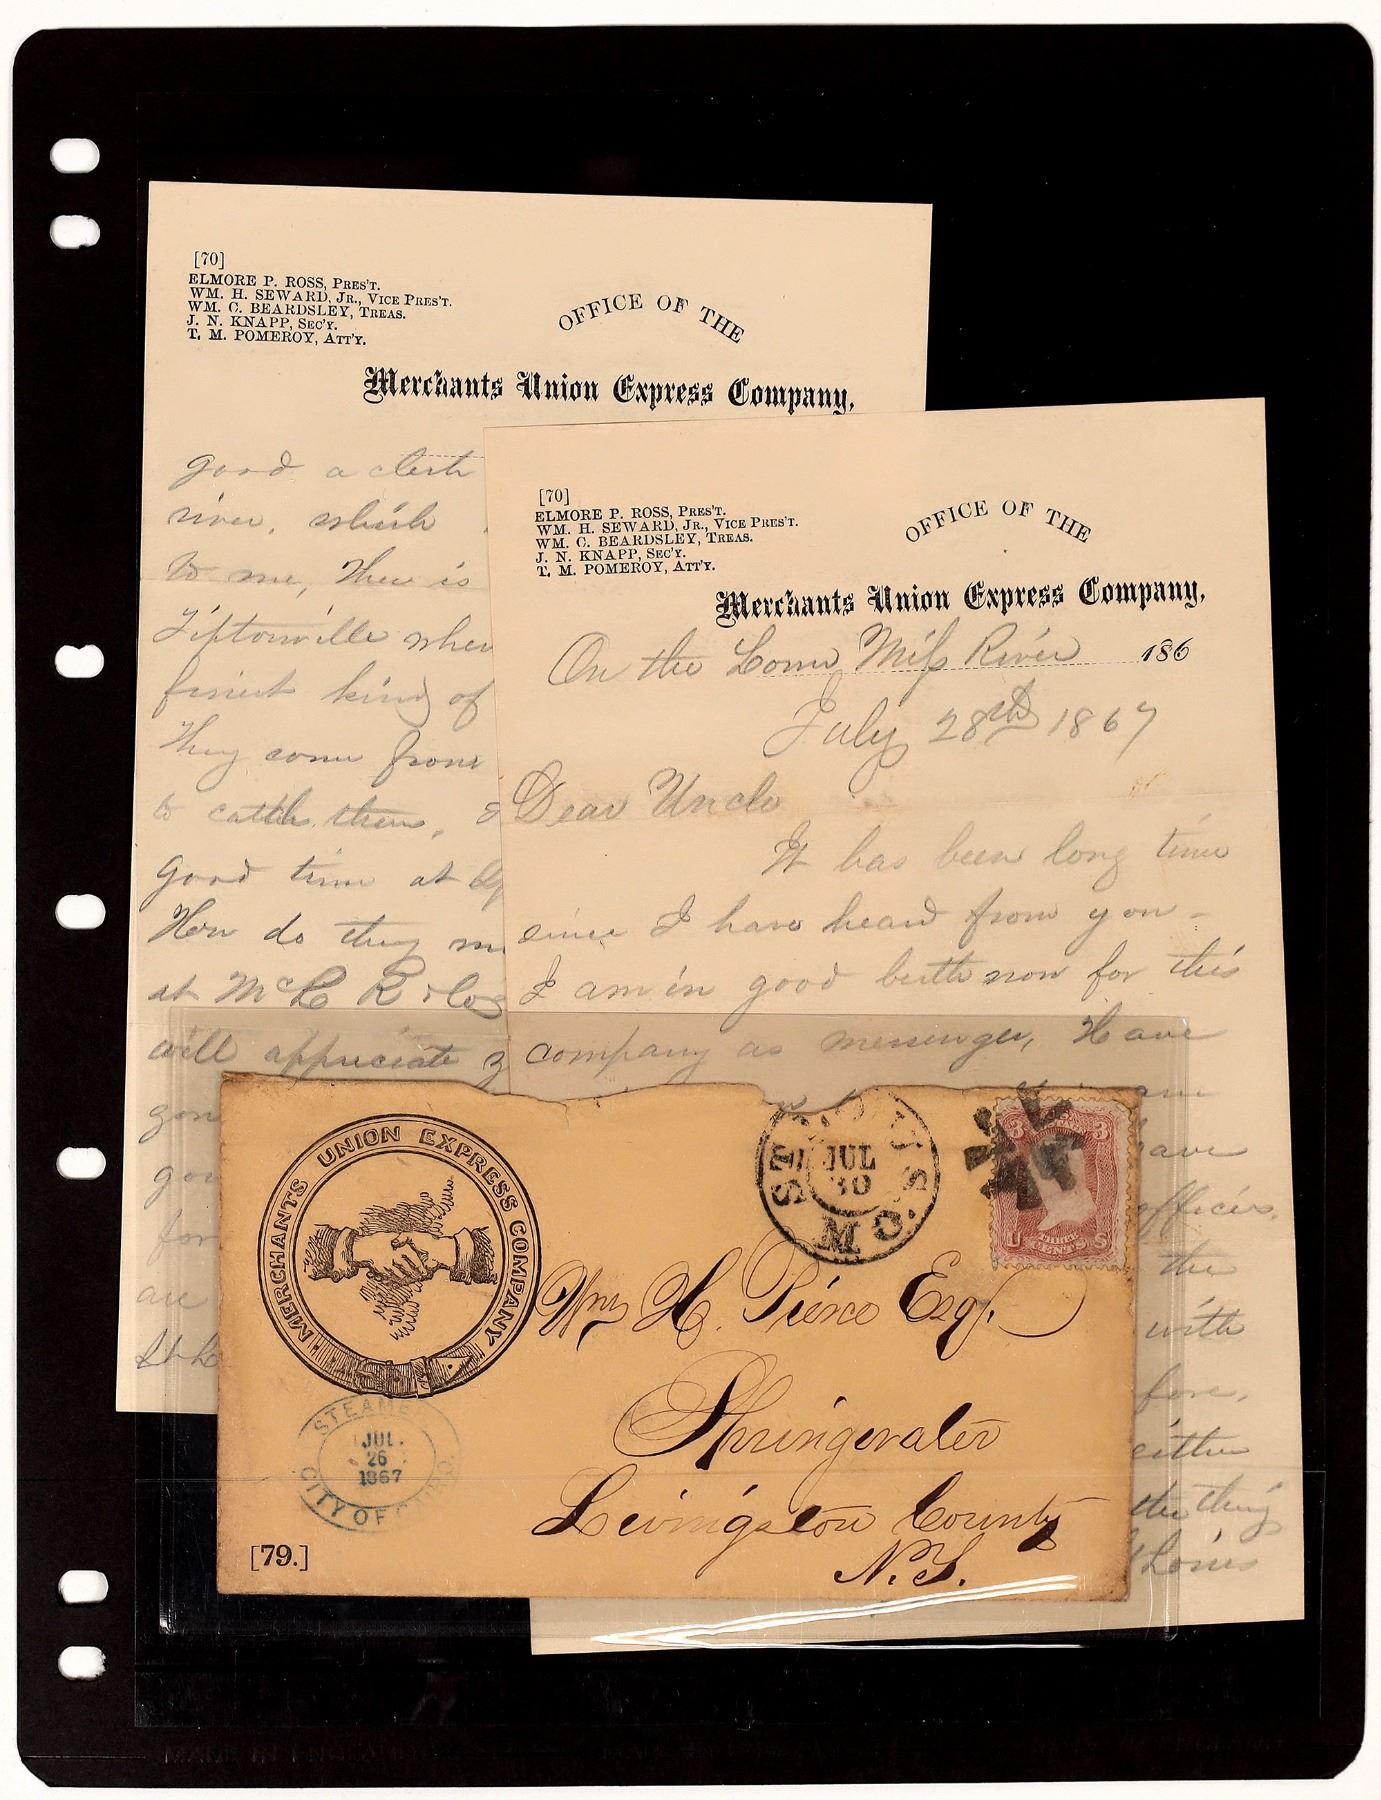 [70]
ELMORE P. ROSS, PRES'T.
WM. H. SEWARD, JR., VICE PRES'T.
WM. C. BEARDSLEY, TREAS.
J. N. KNAPP, SEC'Y.
T. M. POMEROY, ATT'Y.
OFFICE OF THE
Merchants Union Express Company,
good a clerk
river, which
to me, There is
Tiptonville wher
finest kind of
They come from
to catch them,
good time at
How do they
at McL R
will appreciate
gon
goo
for
are
[70]
ELMORE P. ROSS, PRES'T.
WM. H. SEWARD, JR., VICE PRES'T.
WM. C. BEARDSLEY, TREAS.
J. N. KNAPP, SEC'Y.
T. M. POMEROY, ATT'Y.
OFFICE OF THE
Merchants Union Express Company,
On the Lower Miss River 186
July 28th 1867
Dear Uncle
It has been long time
since I have heard from you -
I am in good berth now for this
company as messenger, Have
am
have
officers.
the
with
fore,
either
the thing
MERCHANTS UNION EXPRESS COMPANY
ST. LOUIS MO.
JUL
30
3 3
U THREE CENTS S
Wm H. Pierce Esqr.
Springwater
Livingston County
N.Y.
STEAMER
JUL.
26
1867
CITY OF
[79.]